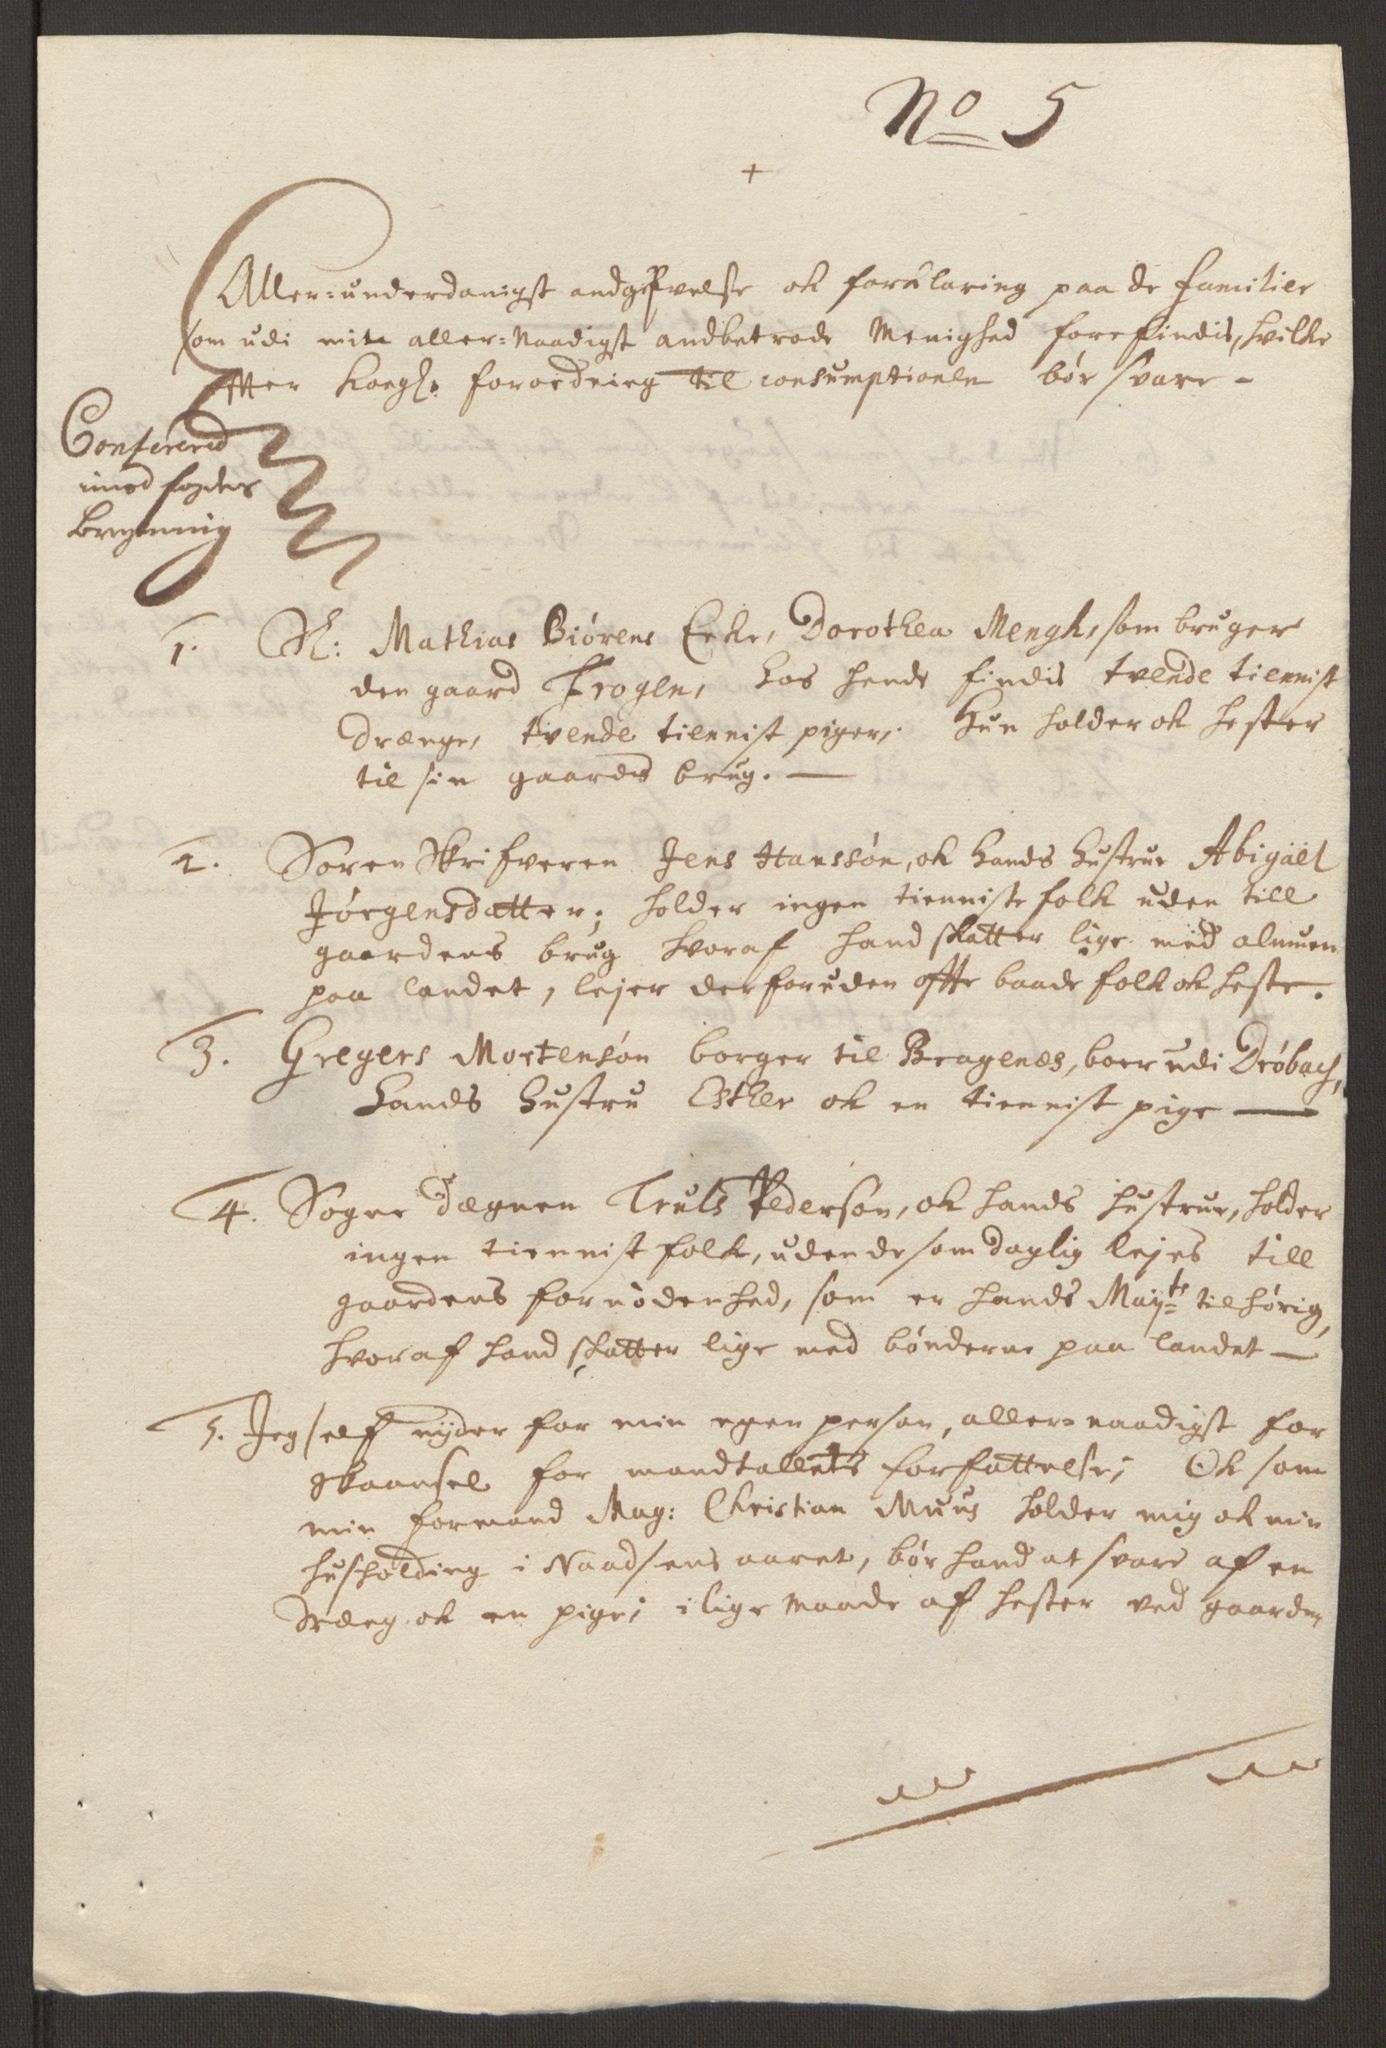 No 5
+
Aller-underdanigst andgifvelse ok forklaring paa de familier
som udi mit aller-Naadigst andbetrode Menighed forefindis, hvilke
effter Kongl: forordning til consumptionen bør svare -
Confererid
imod fogdens
1. Sl: Mathias Biörens Enke, Dorothea Mengh, som bruger
den gaard Frogen, hos hende findis tvende tiennist
drænge, tvende tiennist piger, Hun holder ok hester
til sin gaards brug. —
2. Soren Skrifveren Jens Hanssøn, ok hands hustrue Abigael
Jørgensdatter; holder ingen tienniste folk uden till
gaardens brug hvoraf hand skatter lige med almuen
paa landet, lejer derforuden offte baade folk ok heste.
3. Gregers Mortensøn borger til Bragenæs, boer udi Drøbach,
hands hustru Esther ok en tiennist pige —
4. Sogne Dægnen Truls Pedersøn, ok hands hustrue, holder
ingen tiennist folk, uden de som daglig lejes till
gaardens fornødenhed, som er hands Mayts tilhørig,
hvoraf hand skatter lige med bønderne paa landet —
5. Jeg self nyder for min egen person, aller-naadigst for
skaansel for mandtallets forfattelse; Ok som
min formand Mag: Christian Muus holder mig ok min
husholding i Naadsens aaret, bør hand at svare af en
dræng ok en pige; i lige maade af hester ved gaarden